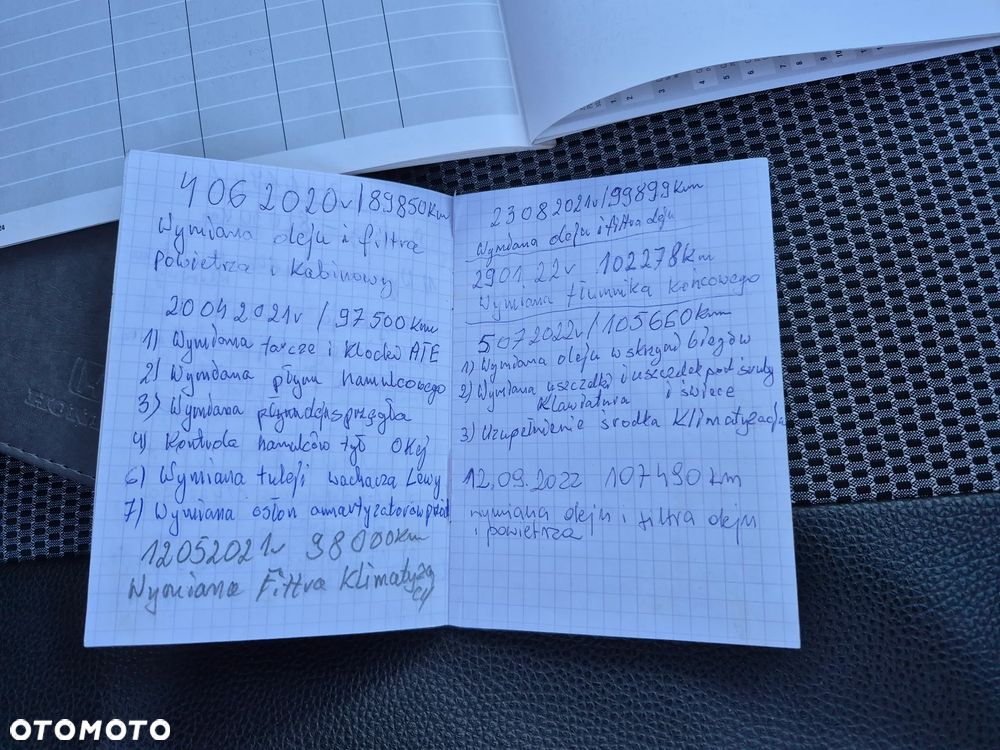 4 06 2020r/89850km
Wymiana oleju i filtra
powietrza i kabinowy
20042021r / 97500km
1) Wymiana tarcze i Klocki ATE
2) Wymiana płynu hamulcowego
3) Wymiana sprzęgła
4) Kontrola hamulców tył okej
6) Wymiana tuleji wachacza Lewy
7) Wymiana osłon amortyzatorów
12052021r 98000km
Wymiana Filtra Klimatyza
cji
23082021r/99899km
Wymiana oleju i filtra oleju
2901.22r 102278km
Wymiana tłumnika końcowego
5072022r/105660km
1) Wymiana oleju w skrzyni biegów
2) Wymiana uszczelki i uszczelek pod śruby
Klawiatura i świece
3) Uzupełnienie środka Klimatyzacja
12.09.2022 107490 km
wymiana oleju i filtra oleju
i powietrza
1 2 3 4 7 8 9 10
HON
OTOMOTO